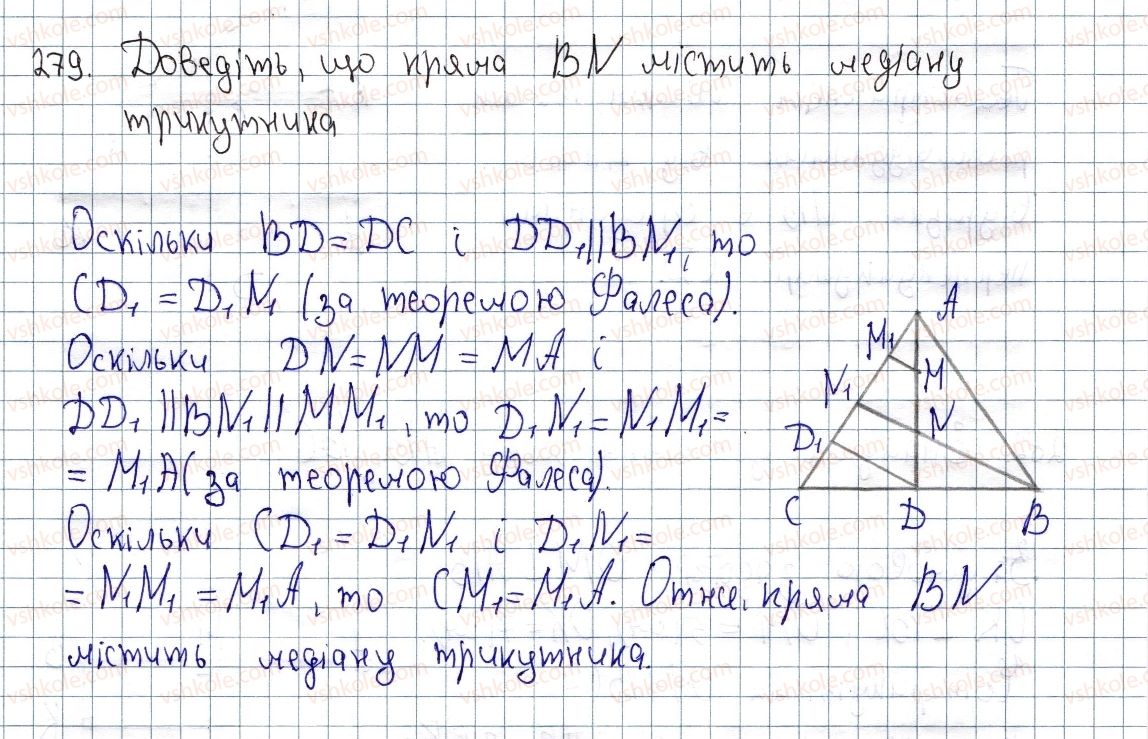 279. Доведіть, що пряма BN містить медіану
трикутника
Оскільки BD = DC і DD₁||BN₁, то
CD₁ = D₁N₁ (за теоремою Фалеса).
Оскільки DN = NM = MA і
DD₁||BN₁||MM₁, то D₁N₁ = N₁M₁ =
= M₁A (за теоремою Фалеса).
Оскільки CD₁ = D₁N₁ і D₁N₁ =
= N₁M₁ = M₁A, то CM₁ = M₁A. Отже, пряма BN
містить медіану трикутника.
A
M₁
M
N₁
N
D₁
C D B
vshkole.com